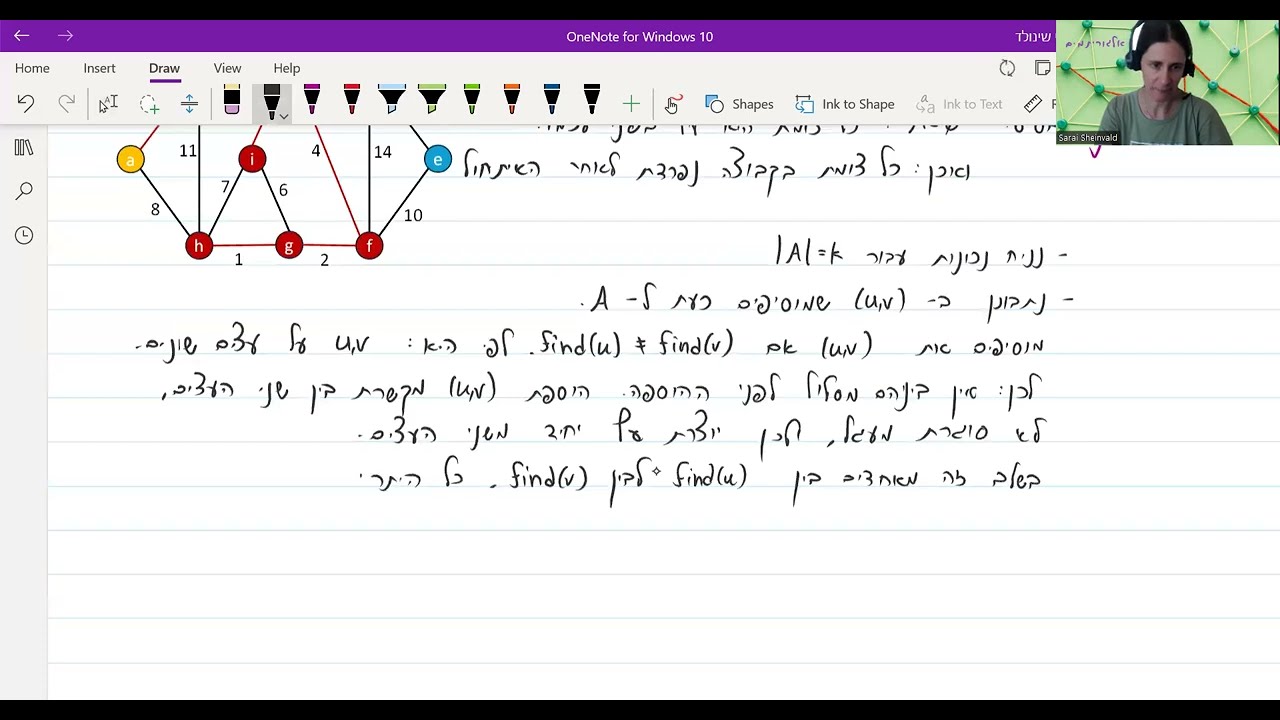 OneNote for Windows 10
שינולד
Home Insert Draw View Help
Shapes Ink to Shape Ink to Text
אלגוריתמים
Sarai Sheinvald
a 11 i 4 14 e
8 7 6 10
h g f
1 2
ואכן: כל צומת בקבוצה נפרדת לאחר האיתחול
- נניח נכונות עבור |A|=k
- נתבונן ב- (u,v) שמוסיפים כעת ל- A.
מוסיפים את (u,v) אם find(u) ≠ find(v). לפי ה.א: u,v על עצים שונים.
לכן: אין ביניהם מסלול לפני ההוספה. הוספת (u,v) מקשרת בין שני העצים,
לא סוגרת מעגל, ולכן יוצרת עץ יחיד משני העצים.
בשלב זה מאחדים בין find(u) לבין find(v). כל היתר